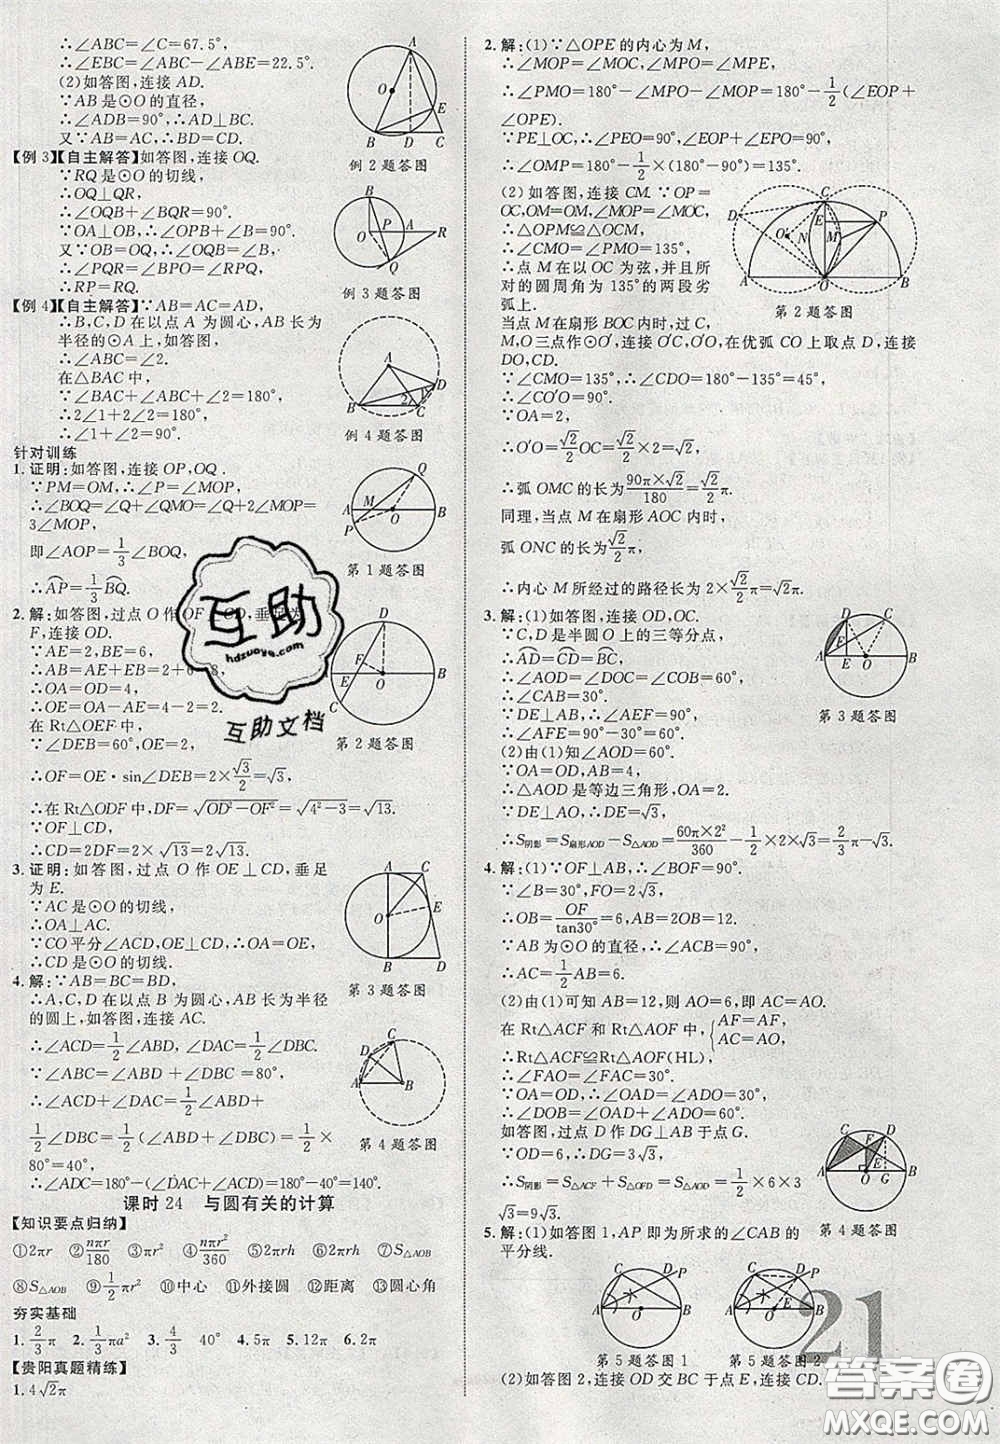 ∴∠ABC=∠ACE=67.5°,
∴∠EBC=∠ABC-∠ABE=22.5°.
(2)如答图,连接 AD.
∵AB 是⊙O 的直径,
∴∠ADB=90°,∴AD⊥BC.
又∵AB=AC,∴BD=DC.
例 2 题答图
【例 3】【自主解答】如答图,连接 OQ.
∵RQ 是⊙O 的切线,
∴OQ⊥QR,
∴∠OQB+∠BQR=90°.
∵OA⊥OB,∴∠OPB+∠B=90°.
又∵OB=OQ,∴∠OQB=∠B,
∴∠PQR=∠BPO=∠RPQ,
∴RP=RQ.
例 3 题答图
【例 4】【自主解答】∵AB=AC=AD,
∴B,C,D 在以点 A 为圆心,AB 长为
半径的⊙A 上,如答图,
∴∠ABC=∠2.
在△BAC 中,
∵∠BAC+∠ABC+∠2=180°,
∴2∠1+2∠2=180°,
∴∠1+∠2=90°.
例 4 题答图
针对训练
1. 证明:如答图,连接 OP,OQ.
∵PM=OM,∴∠P=∠MOP,
∴∠BOQ=∠Q+∠QMO=∠Q+2∠MOP=
3∠MOP,
即∠AOP=1/3∠BOQ,
∴⌒AP=1/3⌒BQ.
第 1 题答图
2. 解:如答图,过点 O 作 OF⊥CD,垂足为
F,连接 OD.
∵AE=2,BE=6,
∴AB=AE+EB=2+6=8,
∴OA=OD=4,
∴OE=OA-AE=4-2=2.
在 Rt△OEF 中,
∵∠DEB=60°,OE=2,
第 2 题答图
∴OF=OE·sin∠DEB=2×√3/2=√3,
∴在 Rt△ODF 中,DF=√(OD²-OF²)=√(4²-3)=√13.
∵OF⊥CD,
∴CD=2DF=2×√13=2√13.
3. 证明:如答图,过点 O 作 OE⊥CD,垂足
为 E.
∵AC 是⊙O 的切线,
∴OA⊥AC.
∵CO 平分∠ACD,OE⊥CD,∴OA=OE,
∴CD 是⊙O 的切线.
第 3 题答图
4. 解:∵AB=BC=BD,
∴A,C,D 在以点 B 为圆心,AB 长为半径
的圆上,如答图,连接 AC.
∴∠ACD=1/2∠ABD,∠DAC=1/2∠DBC.
∵∠ABC=∠ABD+∠DBC=80°,
∴∠ACD+∠DAC=1/2∠ABD+
1/2∠DBC=1/2(∠ABD+∠DBC)=1/2×
80°=40°,
∴∠ADC=180°-(∠ACD+∠DAC)=180°-40°=140°.
第 4 题答图
课时 24 与圆有关的计算
【知识要点归纳】
①2πr ②nπr/180 ③πr² ④nπr²/360 ⑤2πrh ⑥2πrh ⑦S△AOB
⑧S△AOB ⑨1/2πr² ⑩中心 ⑪外接圆 ⑫距离 ⑬圆心角
夯实基础
1. 2/3π 2. 1/3πa² 3. 4/3 40° 4. 2π 5. 12π 6. 2π
【贵阳真题精练】
1. 4√2π
2. 解:(1)∵△OPE 的内心为 M,
∴∠MOP=∠MOC,∠MPO=∠MPE,
∴∠PMO=180°-∠MPO-∠MOP=180°-1/2(∠EOP+
∠OPE).
∵PE⊥OC,∴∠PEO=90°,∠EOP+∠EPO=90°,
∴∠OMP=180°-1/2×(180°-90°)=135°.
(2)如答图,连接 CM. ∵OP=
OC,OM=OM,∠MOP=∠MOC,
∴△OPM≌△OCM,
∴∠CMO=∠PMO=135°,
∴点 M 在以 OC 为弦,并且所
对的圆周角为 135°的两段劣
弧上.
第 2 题答图
当点 M 在扇形 BOC 内时,过 C,
M,O 三点作⊙O′,连接 O′C,O′O,在优弧 CO 上取点 D,连接
DO,CD.
∵∠CMO=135°,∴∠CDO=180°-135°=45°,
∴∠CO′O=90°.
∵OA=2,
∴O′O=√2/2OC=√2/2×2=√2,
∴弧 OMC 的长为90π×√2/180=√2/2π.
同理,当点 M 在扇形 AOC 内时,
弧 ONC 的长为√2/2π,
∴内心 M 所经过的路径长为 2×√2/2π=√2π.
3. 解:(1)如答图,连接 OD,OC.
∵C,D 是半圆 O 上的三等分点,
∴⌒AD=⌒CD=⌒BC,
∴∠AOD=∠DOC=∠COB=60°,
∴∠CAB=30°.
∵DE⊥AB,∴∠AEF=90°,
∴∠AFE=90°-30°=60°.
第 3 题答图
(2)由(1)知∠AOD=60°.
∵OA=OD,AB=4,
∴△AOD 是等边三角形,OA=2.
∵DE⊥AO,∴DE=√3,
∴S阴影=S扇形AOD-S△AOD=60π×2²/360-1/2×2×√3=2/3π-√3.
4. 解:(1)∵OF⊥AB,∴∠BOF=90°.
∵∠B=30°,FO=2√3,
∴OB=OF/tan30°=6,AB=2OB=12.
∵AB 为⊙O 的直径,∴∠ACB=90°,
∴AC=1/2AB=6.
(2)由(1)可知 AB=12,则 AO=6,即 AC=AO.
在 Rt△ACF 和 Rt△AOF 中,{AF=AF,
AC=AO,
∴Rt△ACF≌Rt△AOF(HL),
∴∠FAO=∠FAC=30°.
∵OA=OD,∴∠OAD=∠ADO=30°,
∴∠DOB=∠OAD+∠ADO=60°.
如答图,过点 D 作 DG⊥AB 于点 G.
∵OD=6,∴DG=3√3,
∴S阴影=S△ACF+S△AOD=S△AOD=1/2×6×3
√3=9√3.
第 4 题答图
5. 解:(1)如答图 1,AP 即为所求的∠CAB 的
平分线.
第 5 题答图 1 第 5 题答图 2
(2)如答图 2,连接 OD 交 BC 于点 E,
21
互助
hdzuoye.cn
互助文档
答案圈
MXQE.COM